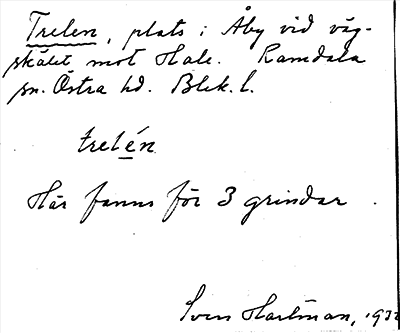 Trelen, plats i Åby vid väg-
skälet mot Hale. Ramdala
sn. Östra hd. Blek. l.
trelén
Här fanns för 3 grindar.
Sven Hartman, 193